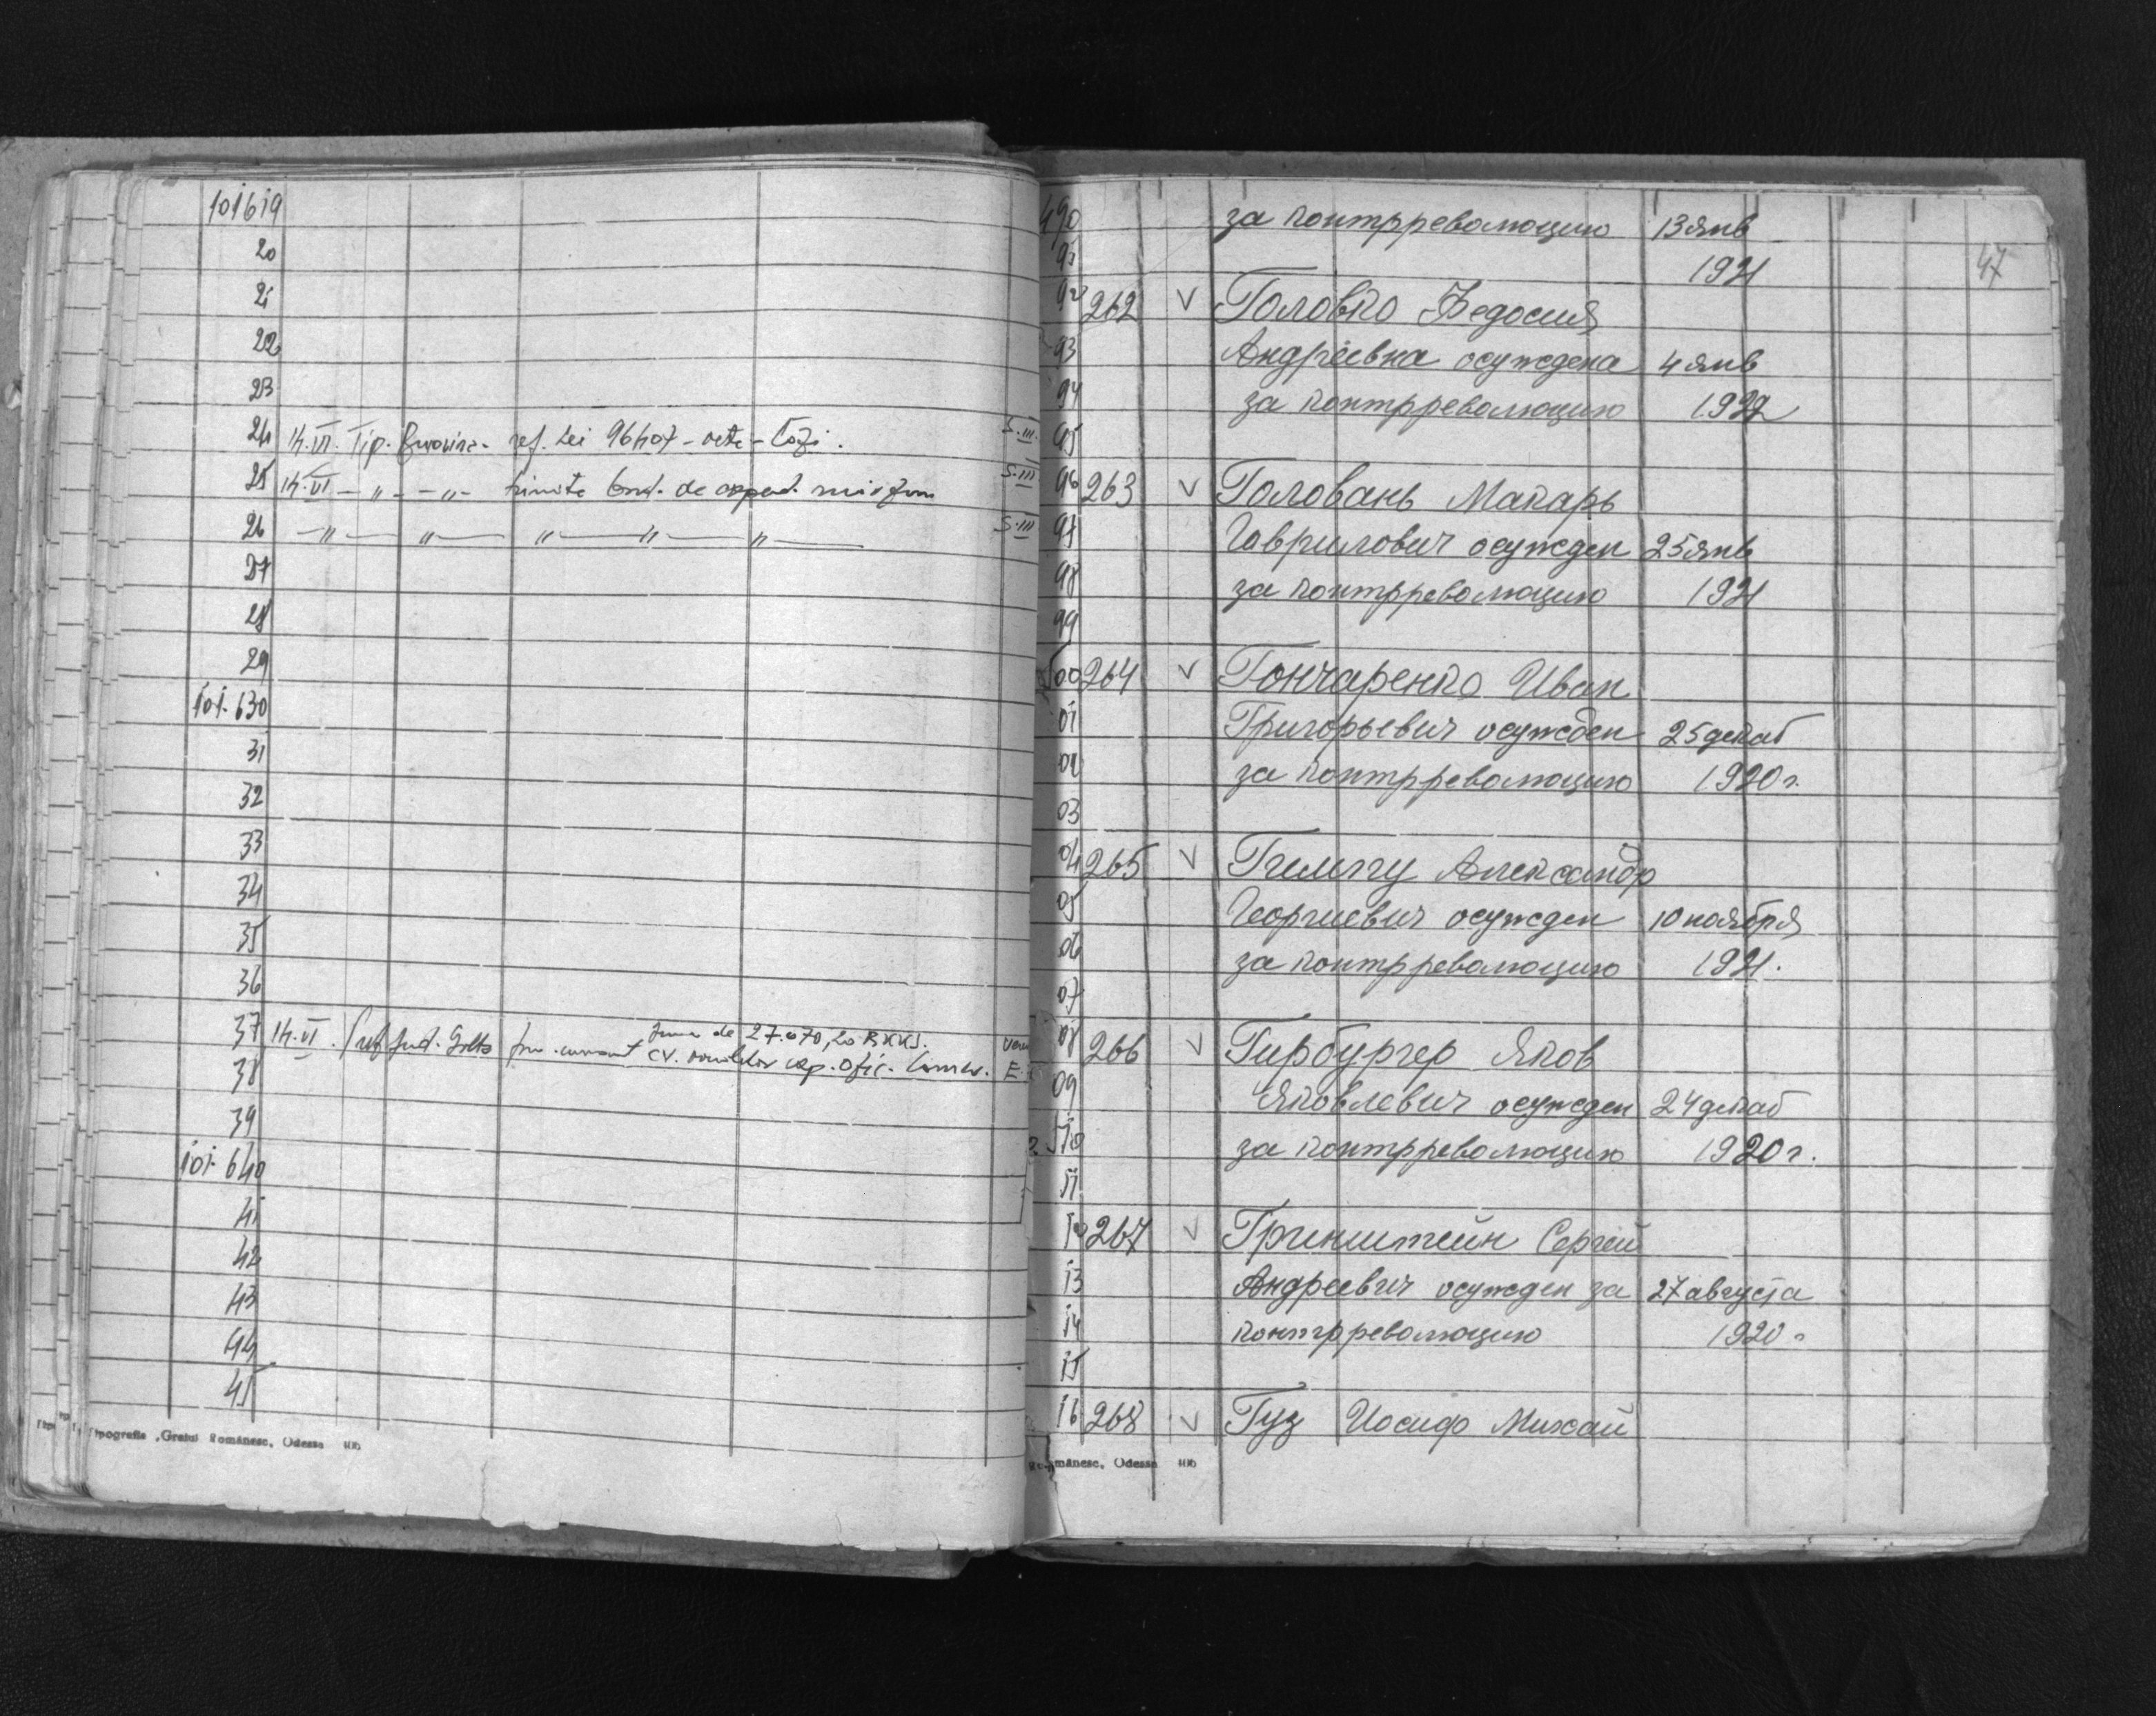 101619
20
21
22
23
24 14.VI. Tip. ref. Lei 96407 S.III.
25 14.VI — „ — „ — trimite de S.III
26 — „ — „ — „ — „ — „ — S.III
27
28
29
101.630
31
32
33
34
35
36
de 27.070,20 RKKS.
37 14.VI.
38
39
101.640
41
42
43
44
45
Tipografia „Graiul Românesc, Odessa
47
490 за контрреволюцию 13 янв
91 1921
92 262 V Головко Федосия
93 Андреевна осуждена 4 янв
94 за контрреволюцию 1922
95
96 263 V Головань Макарь
97 Гаврилович осужден 25 янв
98 за контрреволюцию 1921
99
500 264 V Гончаренко Иван
01 Григорьевич осужден 25 декаб
02 за контрреволюцию 1920 г.
03
04 265 V Гимпу Александр
05 Георгиевич осужден 10 ноября
06 за контрреволюцию 1921.
07
08 266 V Гирбургер Яков
09 Яковлевич осужден 24 декаб
510 за контрреволюцию 1920 г.
11
12 267 V Гринштейн Сергей
13 Андреевич осужден за 27 августа
14 контрреволюцию 1920 г
15
16 268 V Гуз Иосиф Михай
Românesc, Odessa